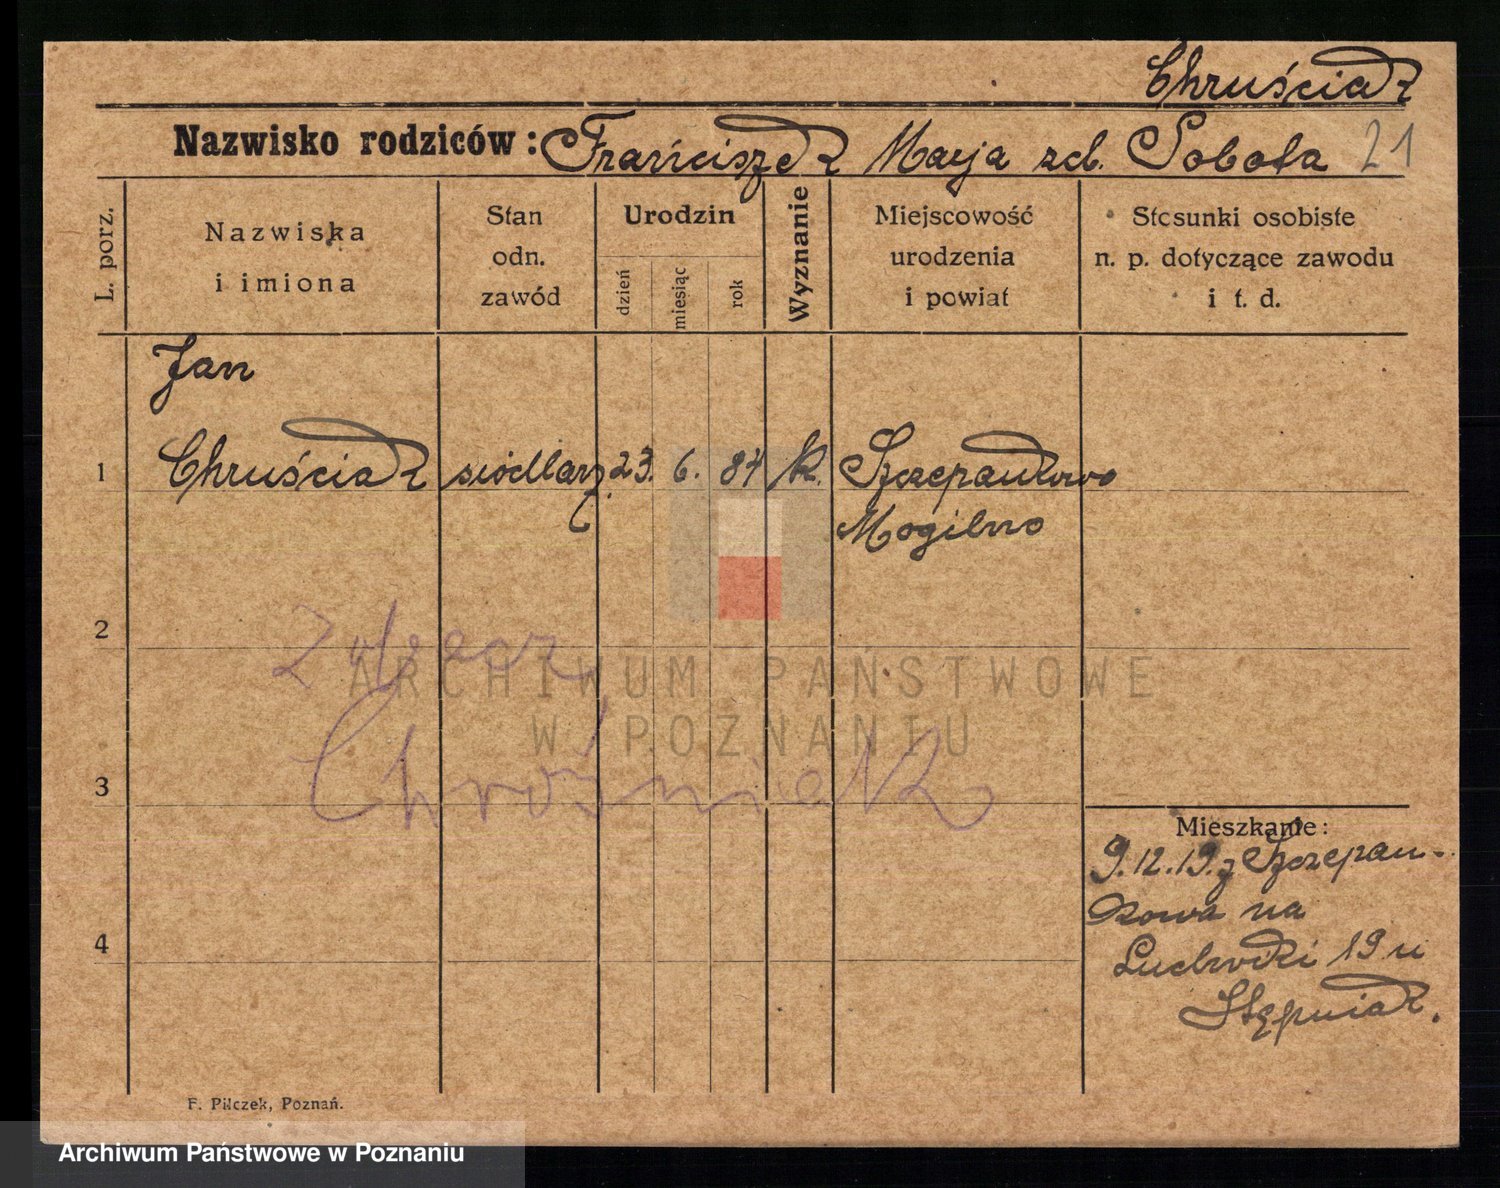 Chruściak
Nazwisko rodziców: Franciszek Marja zd. Sobota 21
L. porz.
Nazwiska
i imiona
Stan
odn.
zawód
Urodzin
dzień
miesiąc
rok
Wyznanie
Miejscowość
urodzenia
i powiat
Stosunki osobiste
n. p. dotyczące zawodu
i t. d.
Jan
1 Chruściak siodlarz 23. 6. 84 k. Szczepankowo
Mogilno
2
Zobacz
ARCHIWUM PAŃSTWOWE
W POZNANIU
3 Chrośniak
Mieszkanie:
9.12.19. z Szczepan-
kowa na
4
19 u
Stępniak.
F. Pilczek, Poznań.
Archiwum Państwowe w Poznaniu